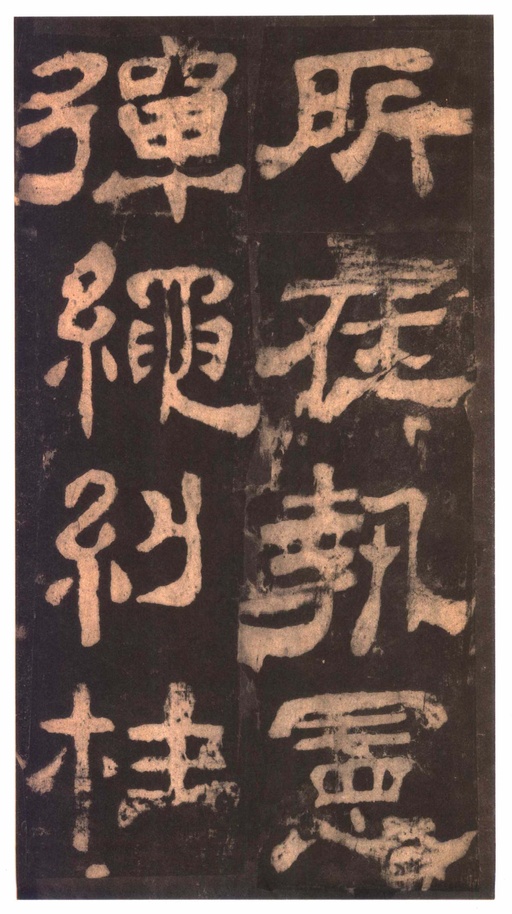 所在執憲
彈繩糾枉